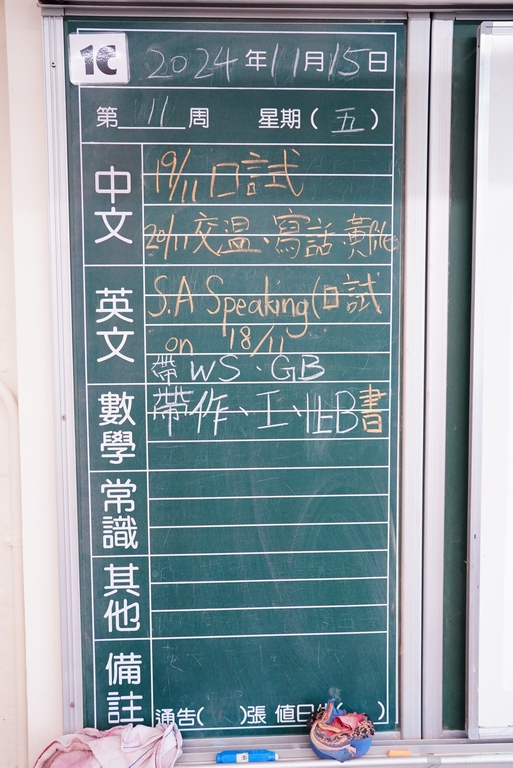 1C
2024年11月15日
第11周 星期(五)
中文
19/11 口試
20/11 交温、寫話、黃file
英文
S.A Speaking(口試
on 18/11
帶WS、GB
數學
帶作、工、 B書
常識
其他
備註
通告( )張 值日生( )